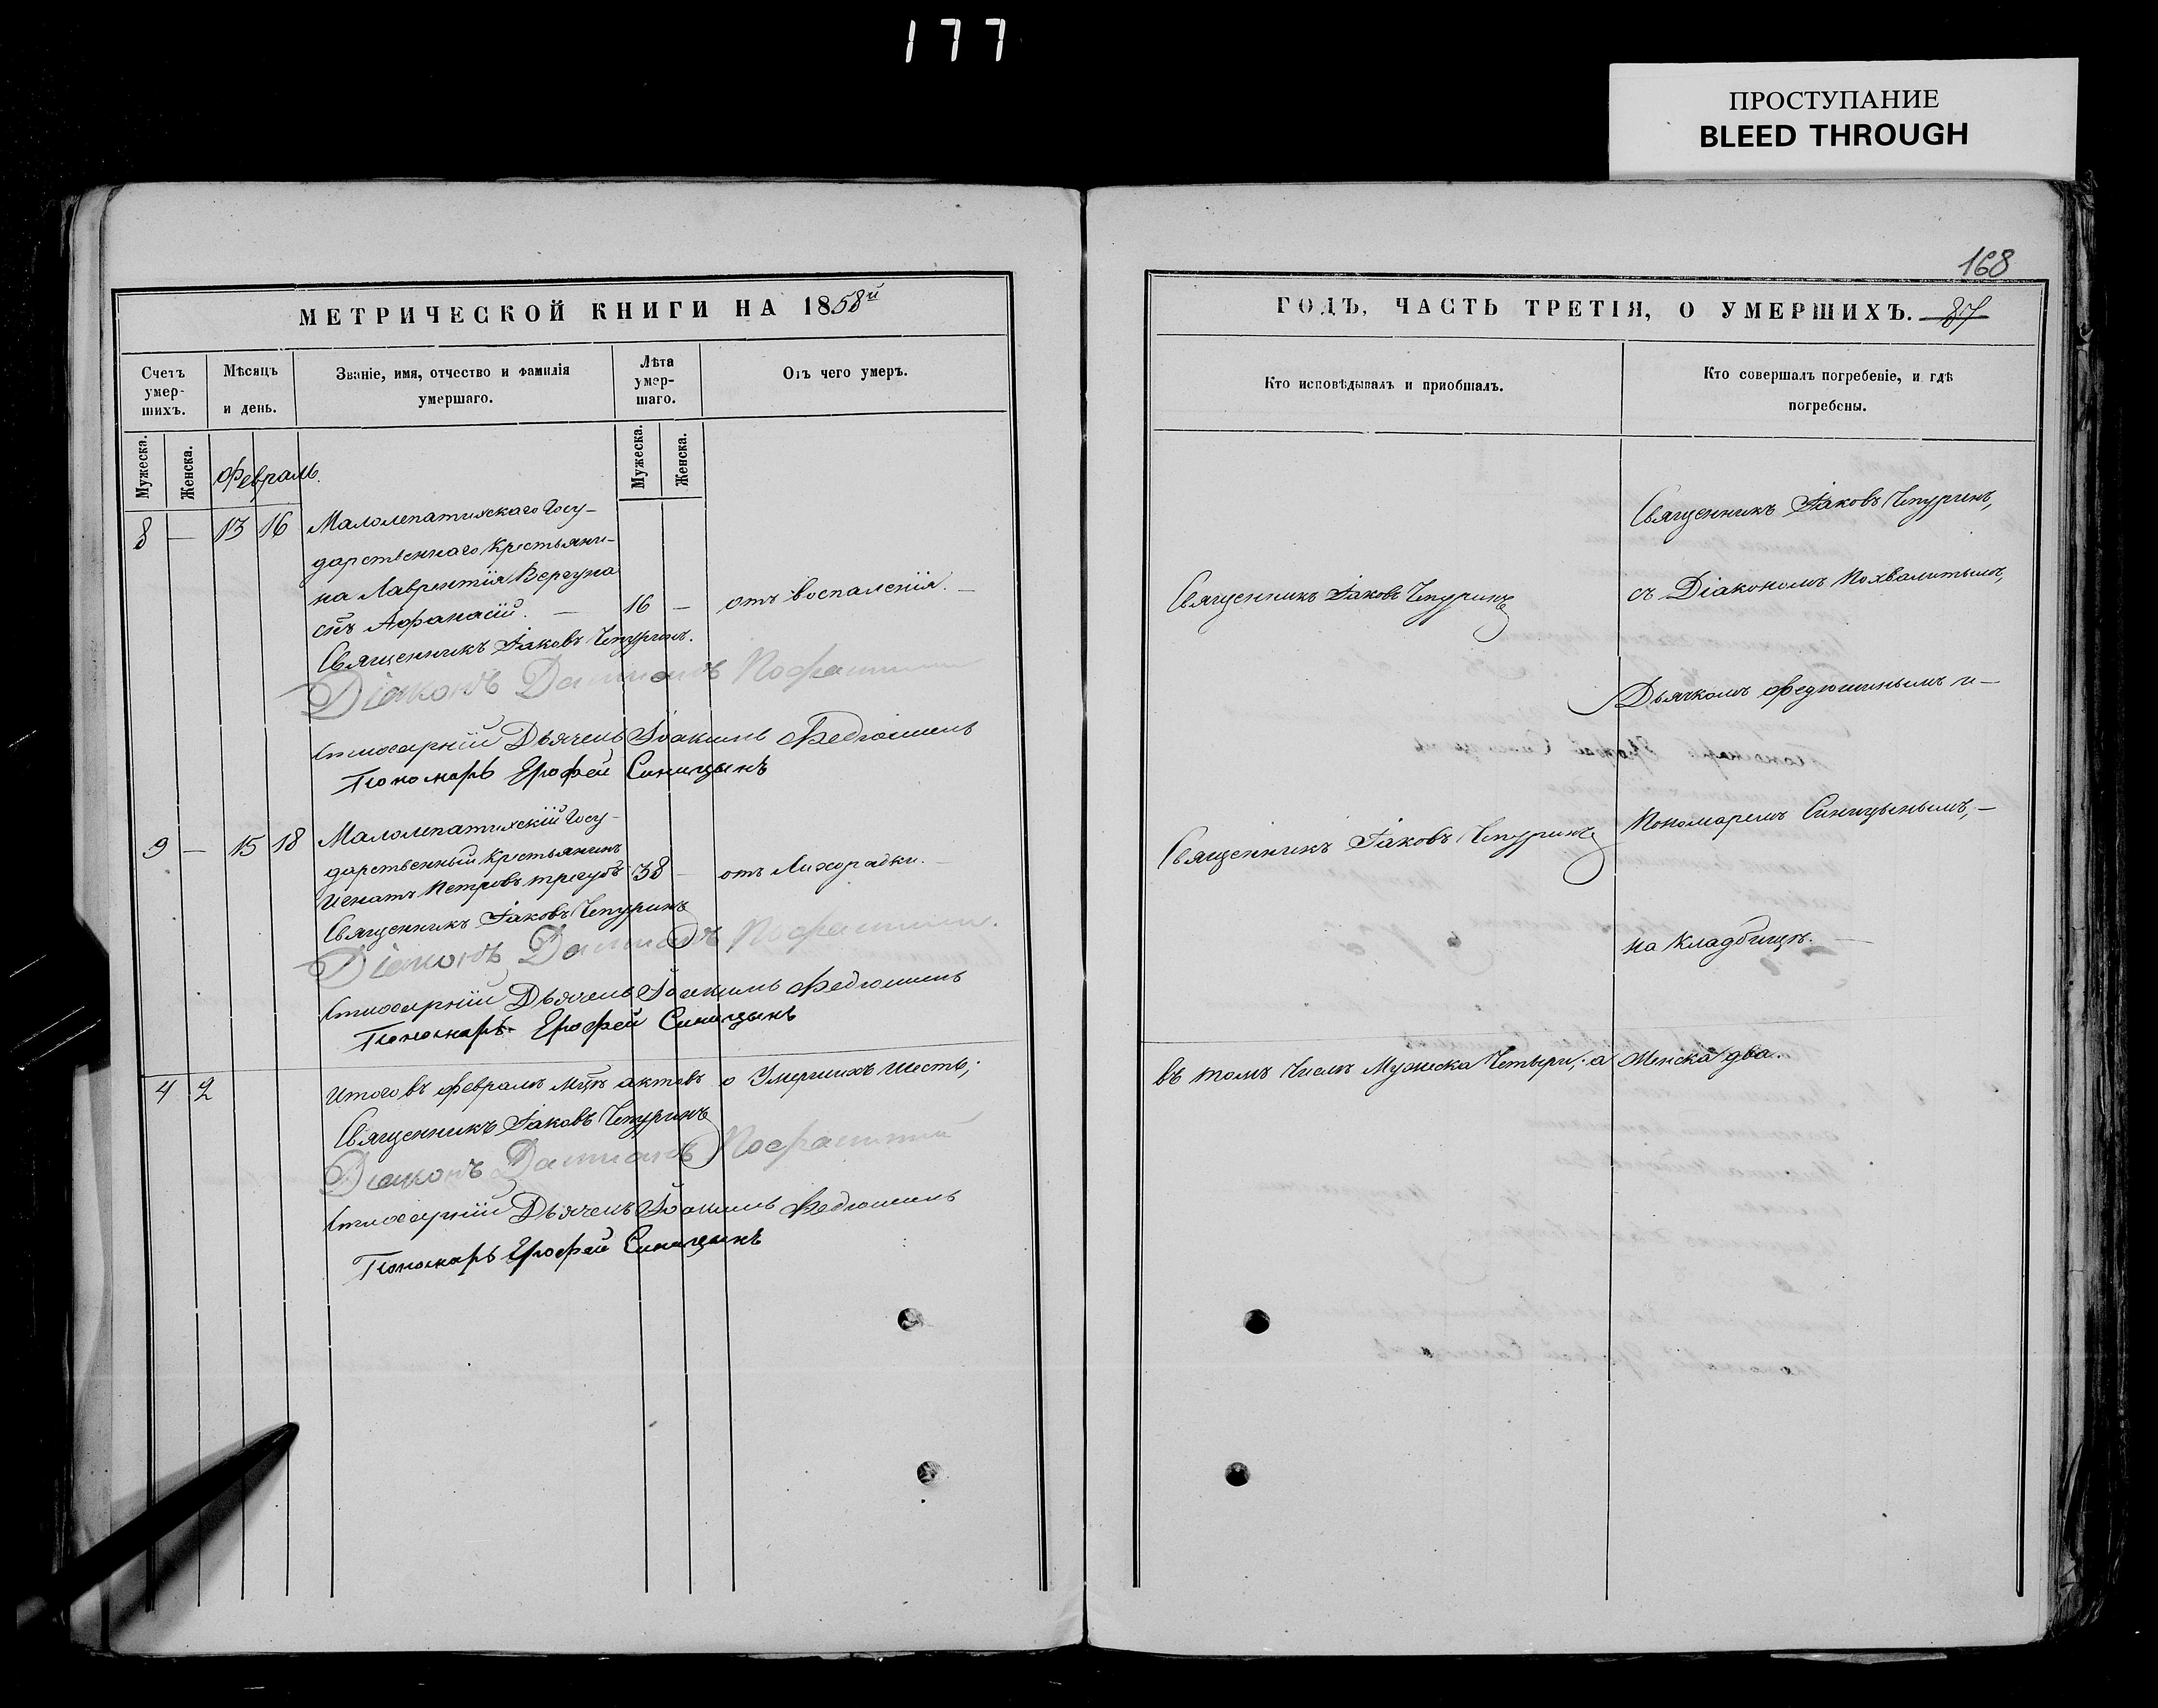 177
ПРОСТУПАНИЕ
BLEED THROUGH
168
МЕТРИЧЕСКОЙ КНИГИ НА 1858й
Счетъ умер-шихъ.
Мѣсяцъ и день.
Званіе, имя, отчество и фамилія умершаго.
Лѣта умер-шаго.
Отъ чего умеръ.
Мужеска.
Женска.
Мужеска.
Женска.
Февраль.
8 — 13 16 Малолепатихскаго Госу-
дарственнаго Крестьяни-
на Лаврентія Вергуна
сынъ Афанасій. — 16 — отъ воспаленія. —
Священникъ Іаковъ Чепуринъ.
Діаконъ Даміанъ
Дьячекъ Іоакимъ Федюшинъ
Пономарь Ерофей Синицынъ
9 — 15 18 Малолепатихскій Госу-
дарственный Крестьянинъ
Игнатъ Петровъ Трегубъ 38 — отъ Лихорадки. —
Священникъ Іаковъ Чепуринъ
Діаконъ Даміанъ
Дьячекъ Іоакимъ Федюшинъ
Пономарь Ерофей Синицынъ
4 2 Итого въ Февралѣ Мцѣ актовъ о Умершихъ шесть;
Священникъ Іаковъ Чепуринъ
Діаконъ Даміанъ
Дьячекъ Іоакимъ Федюшинъ
Пономарь Ерофей Синицынъ
ГОДЪ, ЧАСТЬ ТРЕТІЯ, О УМЕРШИХЪ. 87
Кто исповѣдывалъ и пріобщалъ.
Кто совершалъ погребеніе, и гдѣ
погребены.
Священникъ Іаковъ Чепуринъ,
Священникъ Іаковъ Чепуринъ
съ Діакономъ Похвалитымъ,
Дьячкомъ Федюшинымъ и —
Священникъ Іаковъ Чепуринъ
Пономаремъ Синицынымъ, —
на Кладбищѣ. —
въ томъ Числѣ Мужеска Четыри; а Женска два.